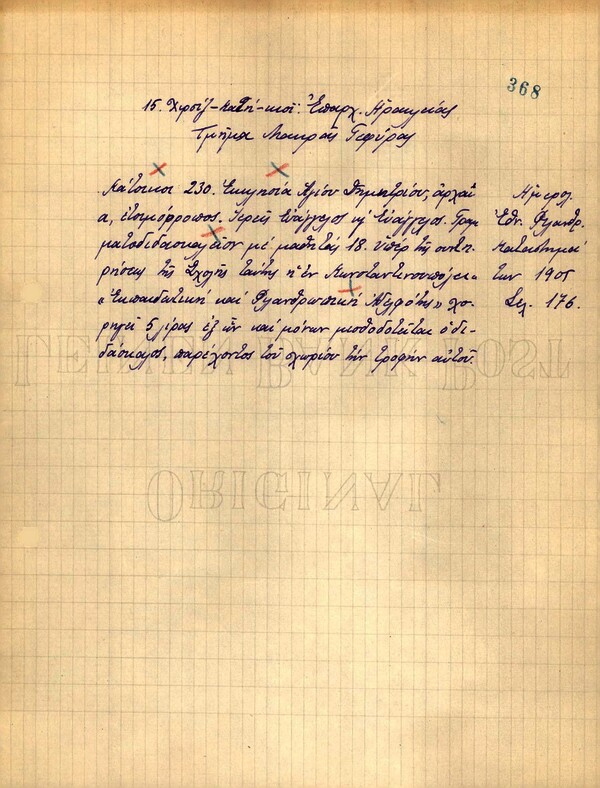 368
15. Χιρσίζ-κατή-κιοϊ: Ἐπαρχ. Ἡρακλείας
Τμῆμα Μακρᾶς Γεφύρας
Κάτοικοι 230. Ἐκκλησία Ἁγίου Δημητρίου, ἀρχαί-
α, ἑτοιμόρροπος. Ἱερεῖς Εὐάγγελος κ' Εὐάγγελος. Γραμ
ματοδιδασκαλεῖον μὲ μαθητὰς 18. Ὑπὲρ τῆς συντη-
ρήσεως τῆς Σχολῆς ταύτης ἡ ἐν Κωνσταντινουπόλει
« Ἐκπαιδευτικὴ καὶ Φιλανθρωπικὴ Ἀδελφότης » χο-
ρηγεῖ 5 λίρας ἐξ ὧν καὶ μόνων μισθοδοτεῖται ὁ δι-
δάσκαλος, παρέχοντος τοῦ χωρίου τὴν τροφὴν αὐτοῦ.
Ἡμερολ.
Ἐθν. Φιλανθρ.
Καταστημά
των 1905
Σελ. 176.
ORIGINAL